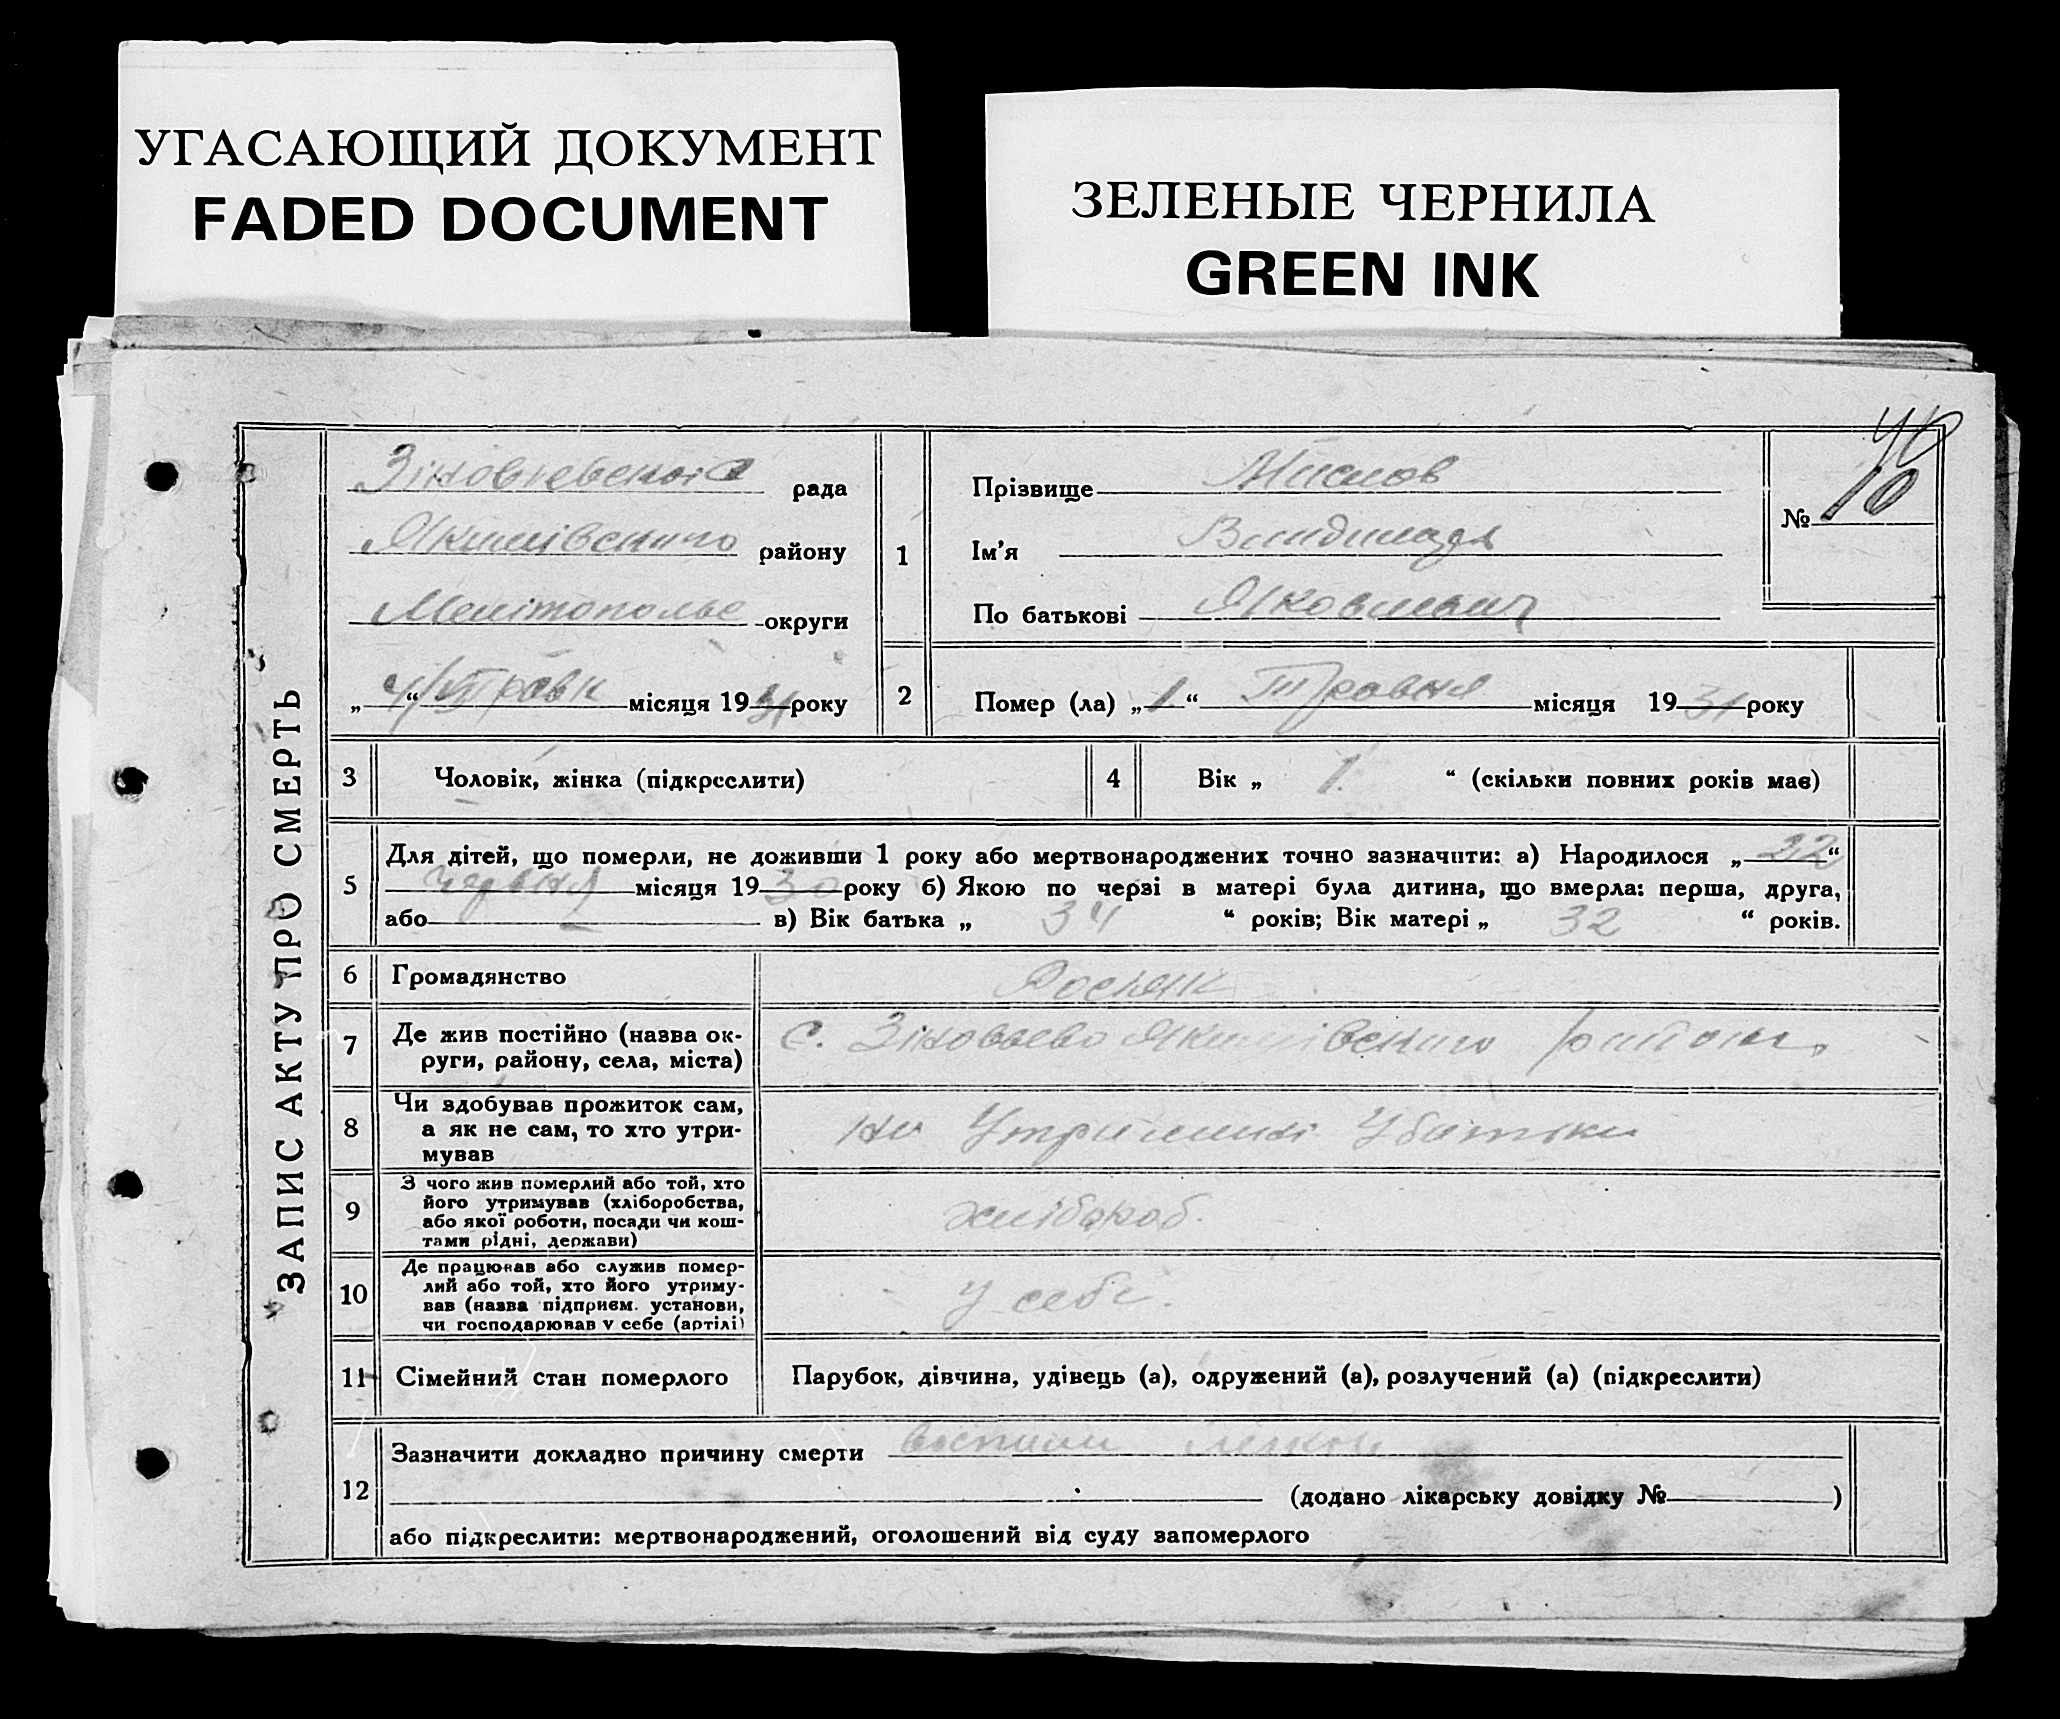 УГАСАЮЩИЙ ДОКУМЕНТ
FADED DOCUMENT
ЗЕЛЕНЫЕ ЧЕРНИЛА
GREEN INK
ЗАПИС АКТУ ПРО СМЕРТЬ
рада
Якимівського району
Мелітополье округи
„ 4 “ травн місяця 19 31 року
1
Прізвище
Ім'я
По батькові Яковлевич
№ 10
2
Помер (ла) „ 1 “ Травня місяця 19 31 року
3
Чоловік, жінка (підкреслити)
4
Вік „ 1. “ (скільки повних років має)
5
Для дітей, що померли, не доживши 1 року або мертвонароджених точно зазначити: а) Народилося „ 22 “
червня місяця 19 30 року б) Якою по черзі в матері була дитина, що вмерла: перша, друга,
або — в) Вік батька „ 34 “ років; Вік матері „ 32 “ років.
6
Громадянство
Росіянин
7
Де жив постійно (назва ок-
руги, району, села, міста)
с. Зіновьево Якимівського район
8
Чи здобував прожиток сам,
а як не сам, то хто утри-
мував
на Утриманні У батька
9
З чого жив померлий або той, хто
його утримував (хліборобства,
або якої роботи, посади чи кош-
тами рідні, держави)
хлібороб.
10
Де працював або служив помер-
лий або той, хто його утриму-
вав (назва підприєм. установи,
чи господарював у себе (артілі)
У себе.
11
Сімейний стан померлого
Парубок, дівчина, удівець (а), одружений (а), розлучений (а) (підкреслити)
12
Зазначити докладно причину смерти
(додано лікарську довідку № )
або підкреслити: мертвонароджений, оголошений від суду запомерлого